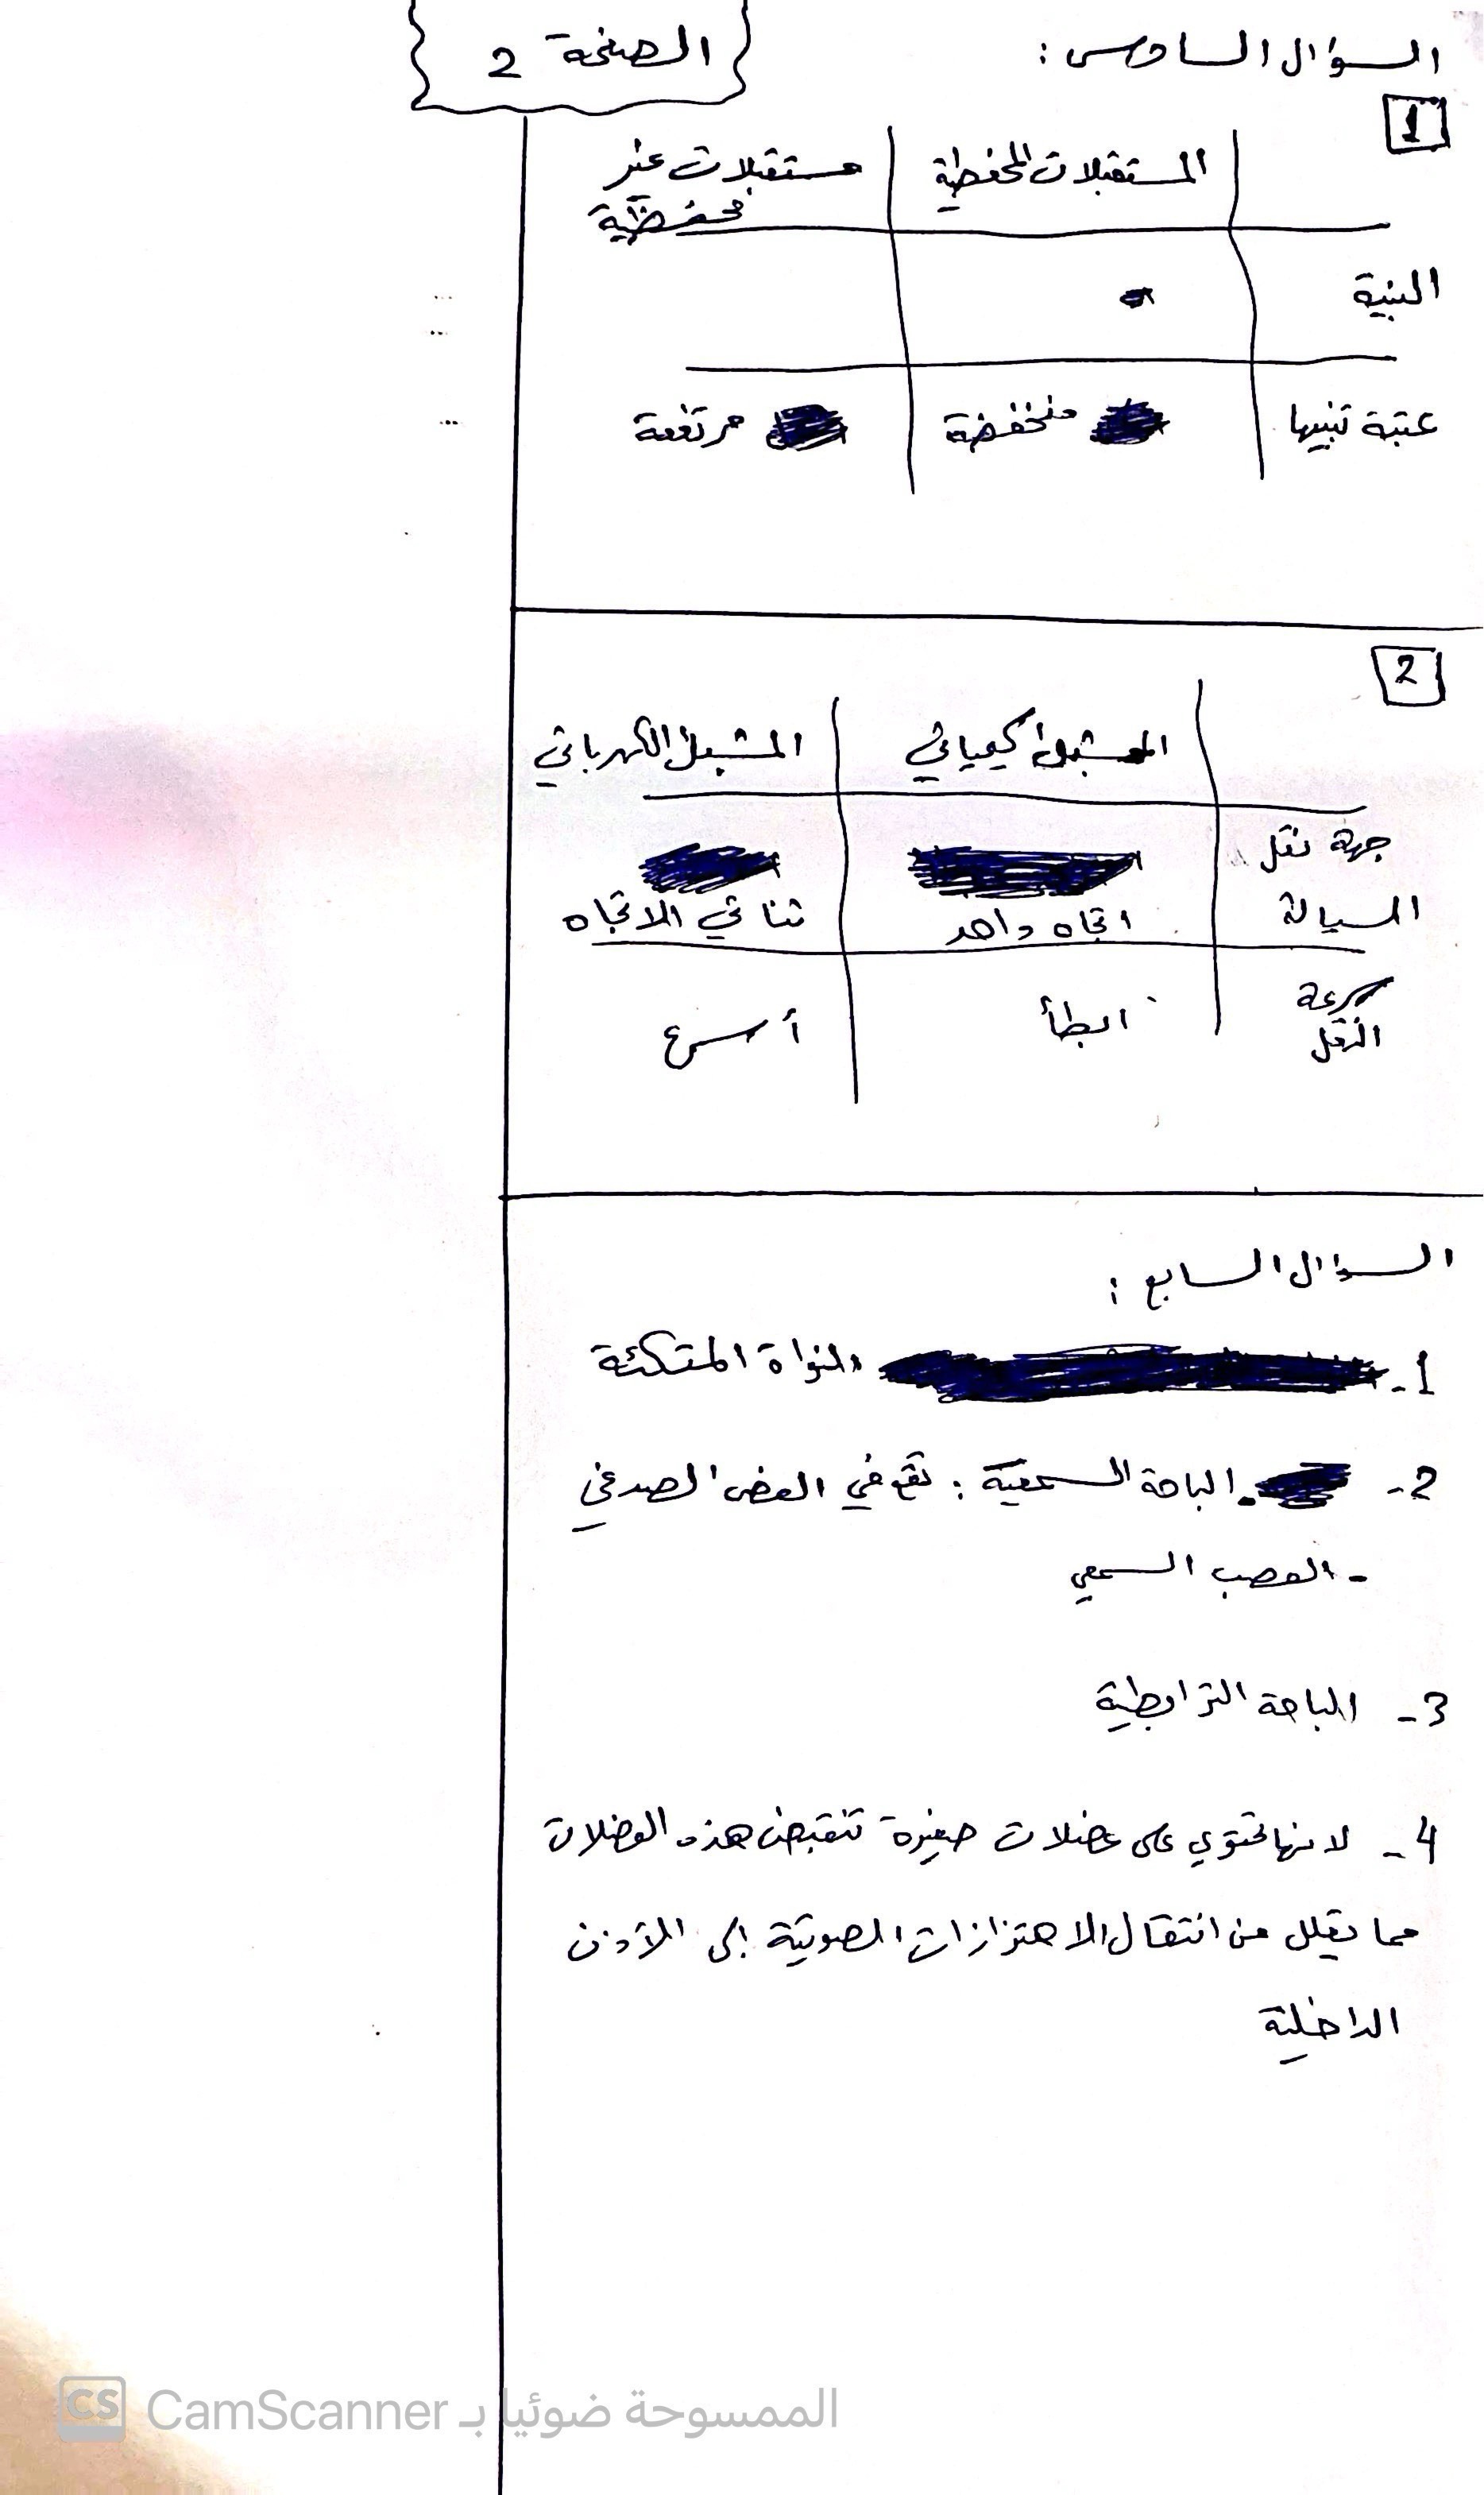 الصفحة 2
السؤال السادس:
1
المستقبلات المحفظية
مستقبلات غير محفظية
البنية
عتبة تنبيها
منخفضة
مرتفعة
2
المشبك الكيميائي
المشبك الكهربائي
جهة نقل السيالة
اتجاه واحد
ثنائي الاتجاه
سرعة النقل
ابطأ
أسرع
السؤال السابع:
1- النواة المتكئة
2- - الباحة السمعية: تقع في الفص الصدغي
- العصب السمعي
3- الباحة الترابطية
4- لانها تحتوي على عضلات صغيرة تنقبض هذه العضلات
مما يقلل من انتقال الاهتزازات الصوتية إلى الأذن
الداخلية
CS CamScanner الممسوحة ضوئيا بـ